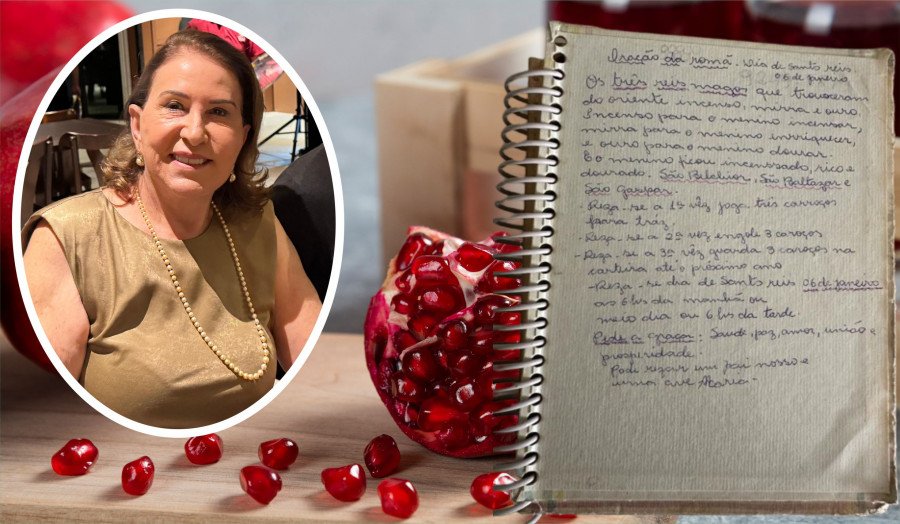 Oração da romã. Dia de Santo reis
06 de janeiro
Os três reis magos que trouxeram
do oriente incenso, mirra e ouro
Incenso para o menino incensar,
mirra para o menino inrriquecer,
e ouro para o menino dourar.
E o menino ficou incenssado, rico e
dourado. São Belchior, São Baltazar e
São Gaspar.
- Reza-se a 1ª vêz joga três caroços
para traz
- Reza-se a 2ª vez engole 3 caroços
- Reza-se a 3ª vêz guarda 3 caroços na
carteira até o próximo ano
- Reza-se dia de Santos reis 06 de janeiro
as 6 hs da manhã ou
meio dia ou 6 hs da tarde.
Pede a graça: Saude, paz, amor, união e
prosperidade.
Pode rezar um pai nosso e
uma ave Maria-